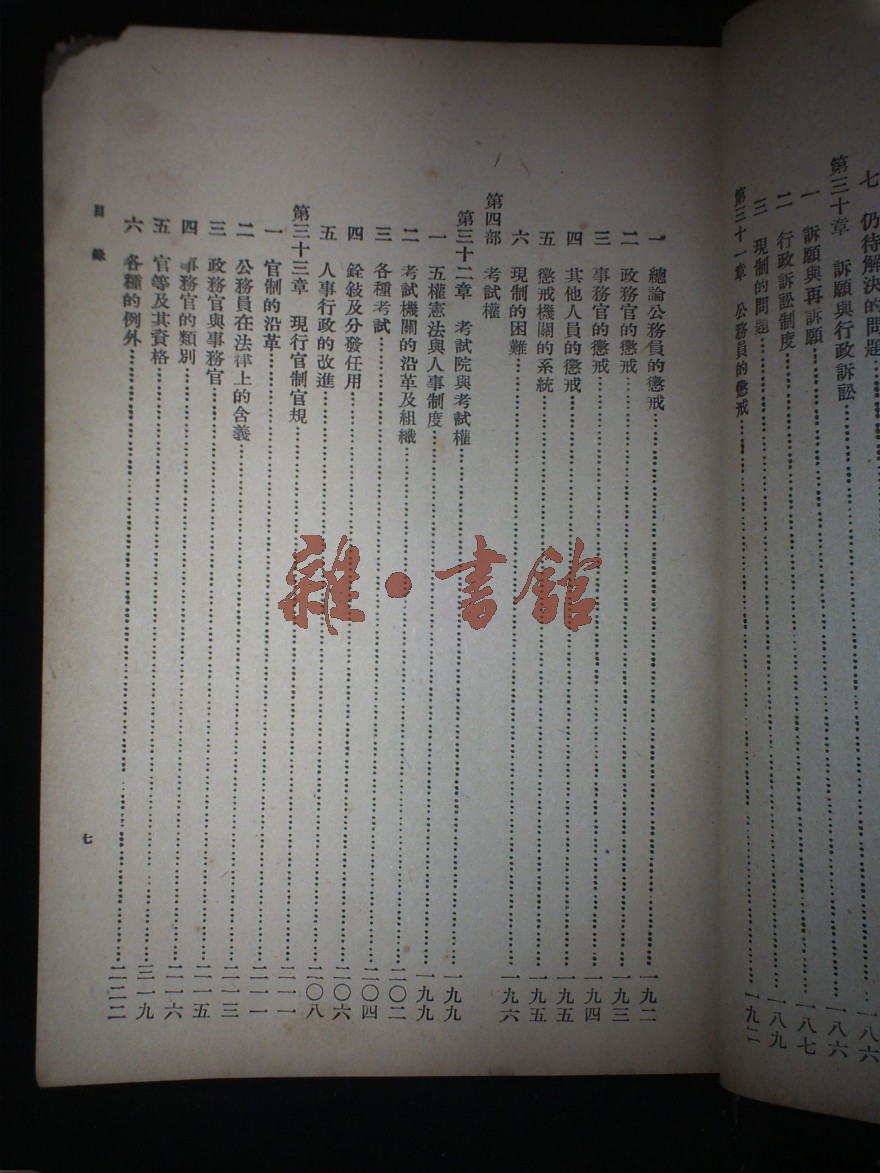 七 仍待解決的問題 一八六
第三十章 訴願與行政訴訟 一八六
一 訴願與再訴願 一八七
二 行政訴訟制度 一八九
三 現制的問題 一九二
第三十一章 公務員的懲戒 一九二
一 總論公務員的懲戒 一九二
二 政務官的懲戒 一九三
三 事務官的懲戒 一九四
四 其他人員的懲戒 一九五
五 懲戒機關的系統 一九五
六 現制的困難 一九六
第四部 考試權
第三十二章 考試院與考試權 一九九
一 五權憲法與人事制度 一九九
二 考試機關的沿革及組織 二〇二
三 各種考試 二〇四
四 銓敍及分發任用 二〇六
五 人事行政的改進 二〇八
第三十三章 現行官制官規 二一一
一 官制的沿革 二一一
二 公務員在法律上的含義 二一三
三 政務官與事務官 二一五
四 事務官的類別 二一六
五 官等及其資格 三一九
六 各種的例外 二二二
目錄
七
雜·書館